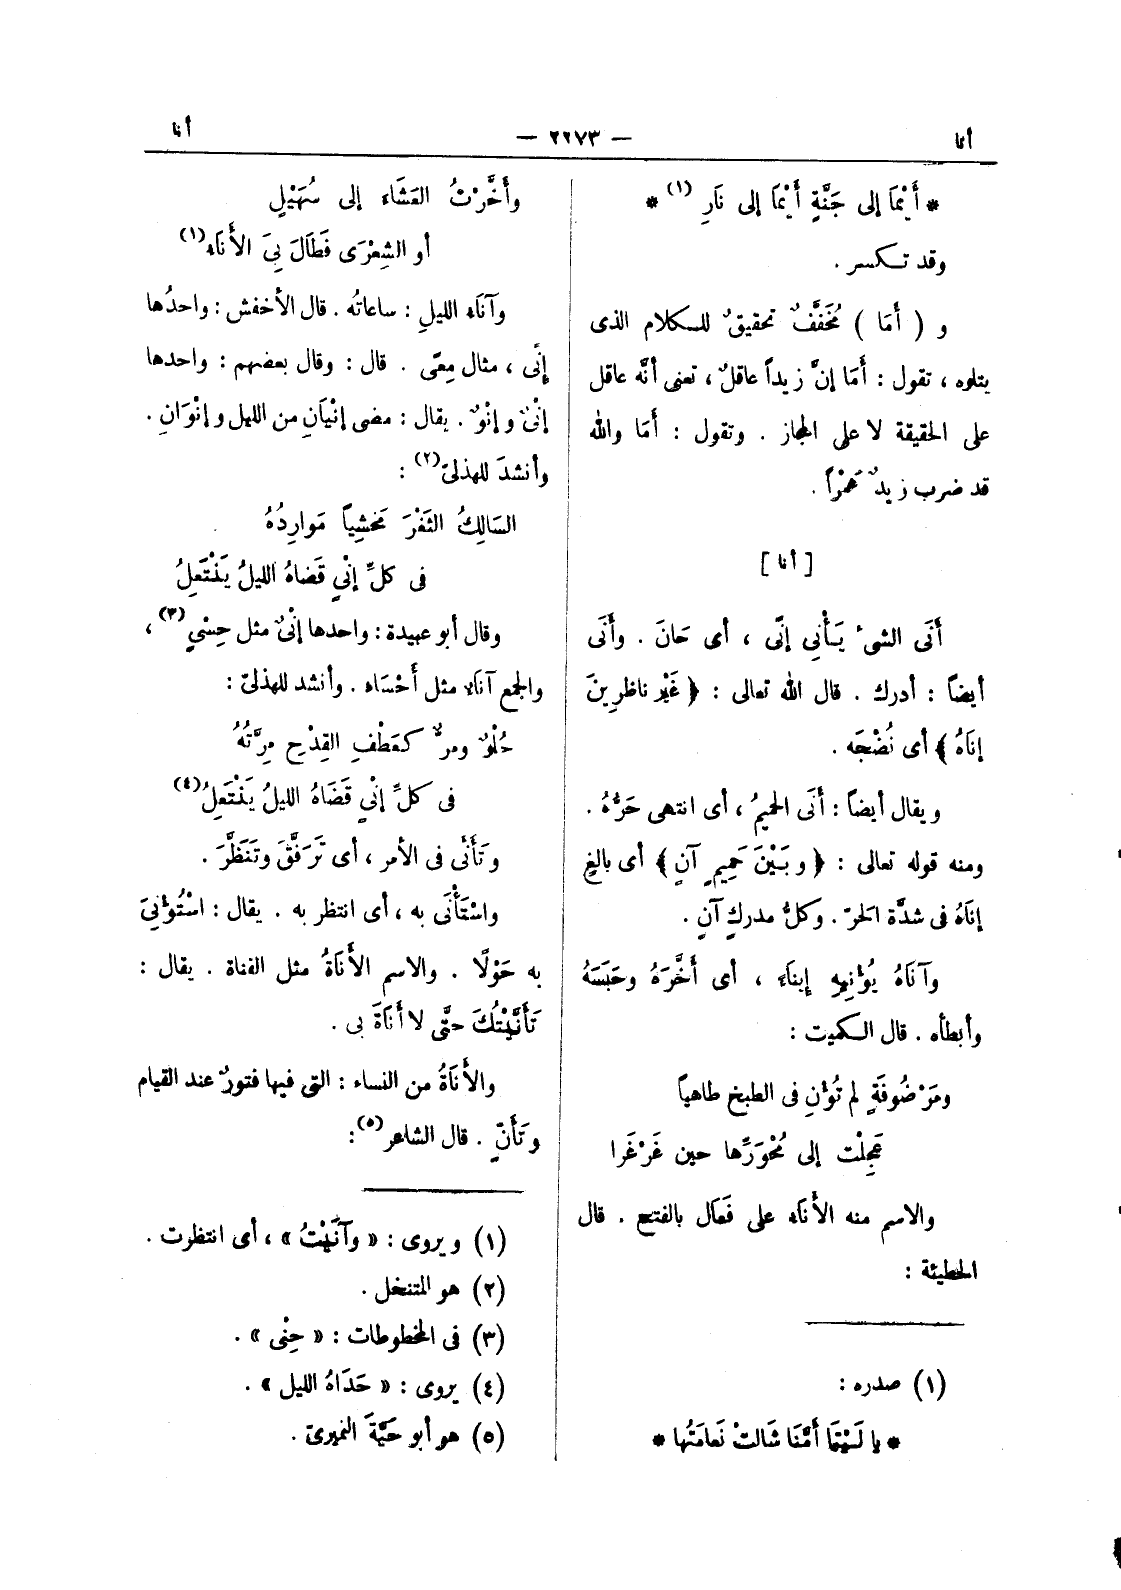 أنا
— ٢٢٧٣ —
أنا
* أَيْمَا إلى جَنَّةٍ أَيْمَا إلى نَارِ (١) *
وقد تكسر .
و ( أَمَا ) مُخَفَّفٌ تحقيقٌ للكلام الذى
يتلوه ، تقول : أَمَا إنَّ زيداً عاقلٌ ، تعنى أنَّه عاقل
على الحقيقة لا على المجاز . وتقول : أَمَا والله
قد ضرب زيدٌ عَمْرًا .
[ أنا ]
أَنَى الشىء يَأْنِي إنًى ، أى حَانَ . وأَنَى
أيضاً : أدرك . قال الله تعالى : ﴿ غَيْرَ ناظرِينَ
إنَاهُ ﴾ أى نُضْجَه .
ويقال أيضاً : أَنَى الحميمُ ، أى انتهى حَرُّهُ .
ومنه قوله تعالى : ﴿ وبَيْنَ حَمِيمٍ آنٍ ﴾ أى بالغٍ
إنَاهُ فى شدَّة الحَرّ . وكلُّ مدركٍ آنٍ .
وآنَاهُ يُؤْنِيهِ إينَاءً ، أى أَخَّرَهُ وحَبَسَهُ
وأبطأه . قال الكميت :
ومَرْضُوفَةٍ لم تُؤْنِ فى الطبخ طاهياً
عَجِلْت إلى مُحْوَرِّها حين غَرْغَرا
والاسم منه الأَنَاء على فَعَال بالفتح . قال
الحطيئة :
(١) صدره :
* يا لَيْتَمَا أُمَّنَا شَالتْ نَعامَتُها *
وأَخَّرْتُ العَشَاء إلى سُهَيْلٍ
أو الشِعْرَى فَطَالَ بِيَ الأَنَاء (١)
وآنَاء الليلِ : ساعاتُه . قال الأخفش : واحدُها
إنًى ، مثال مِعًى . قال : وقال بعضهم : واحدها
إنْىٌ وإنْوٌ . يقال : مضى إنْيَانِ من الليل وإنْوَانِ .
وأنشدَ للهذلىّ (٢) :
السَالِكُ الثَغْرَ مَخشِياً مَوارِدُهُ
فى كلِّ إنْيٍ قَضاهُ الليلُ يَنْتَعِلُ
وقال أبو عبيدة : واحدها إنْىٌ مثل حِسْيٍ (٣) ،
والجمع آنَاء مثل أَحْسَاء . وأنشد للهذلىّ :
حُلْوٌ ومرٌّ كعَطْفِ القِدْحِ مِرَّتُهُ
فى كلِّ إنْيٍ قَضَاهُ الليلُ يَنْتَعِلُ (٤)
وتَأَنَّى فى الأمر ، أى تَرَفَّقَ وتَنَظَّرَ .
واسْتَأْنَى به ، أى انتظر به . يقال : اسْتُؤْنِيَ
به حَوْلًا . والاسم الأَنَاةُ مثل القناة . يقال :
تَأَنَّيْتُكَ حتَّى لا أَنَاةَ بى .
والأَنَاةُ من النساء : التى فيها فتورٌ عند القيام
وتَأَنٍّ . قال الشاعر (٥) :
(١) ويروى : « وآنَيْتُ » ، أى انتظرت .
(٢) هو المتنخل .
(٣) فى المخطوطات : « حِنْى » .
(٤) يروى : « حَذَاهُ الليل » .
(٥) هو أبو حَيَّةَ النميرىّ .